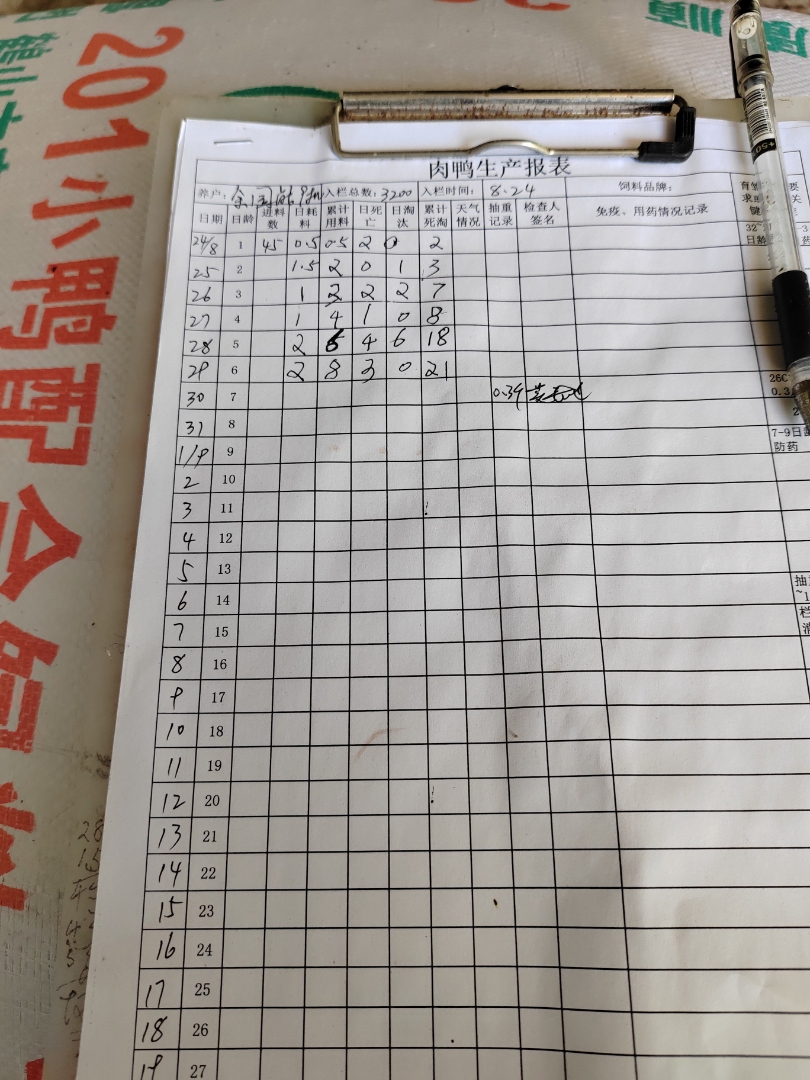 201小鸭配合饲料
肉鸭生产报表
养户: 入栏总数: 3200 入栏时间: 8.24 饲料品牌:
日期 日龄 进料数 日耗料 累计用料 日死亡 日淘汰 累计死淘 天气情况 抽重记录 检查人签名 免疫、用药情况记录
24/8 1 45 0.5 0.5 2 0 2
25 2 1.5 2 0 1 3
26 3 1 2 2 2 7
27 4 1 4 1 0 8
28 5 2 6 4 6 18
29 6 2 8 3 0 21
30 7 0.39
31 8
1/9 9
2 10
3 11
4 12
5 13
6 14
7 15
8 16
9 17
10 18
11 19
12 20
13 21
14 22
15 23
16 24
17 25
18 26
19 27
26C
0.3
7-9日龄
防药